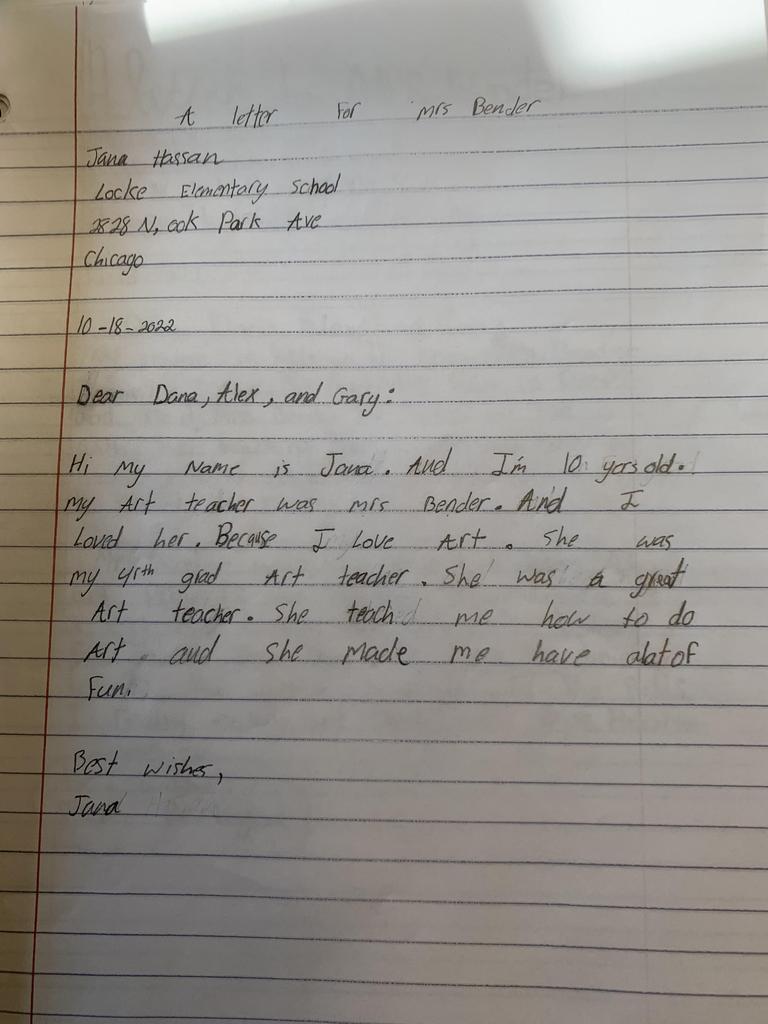 A letter For mrs Bender
Jana Hassan
Locke Elementary School
2828 N, ook Park Ave
Chicago
10-18-2022
Dear Dana, Alex, and Gary:
Hi My Name is Jana. And I'm 10 yers old.
my Art teacher was mrs Bender. And I
Loved her. Becase I Love Art. She was
my 4rth grad Art teacher. She was a great
Art teacher. She teach me how to do
Art and she made me have alatof
Fun.
Best wishes,
Jana